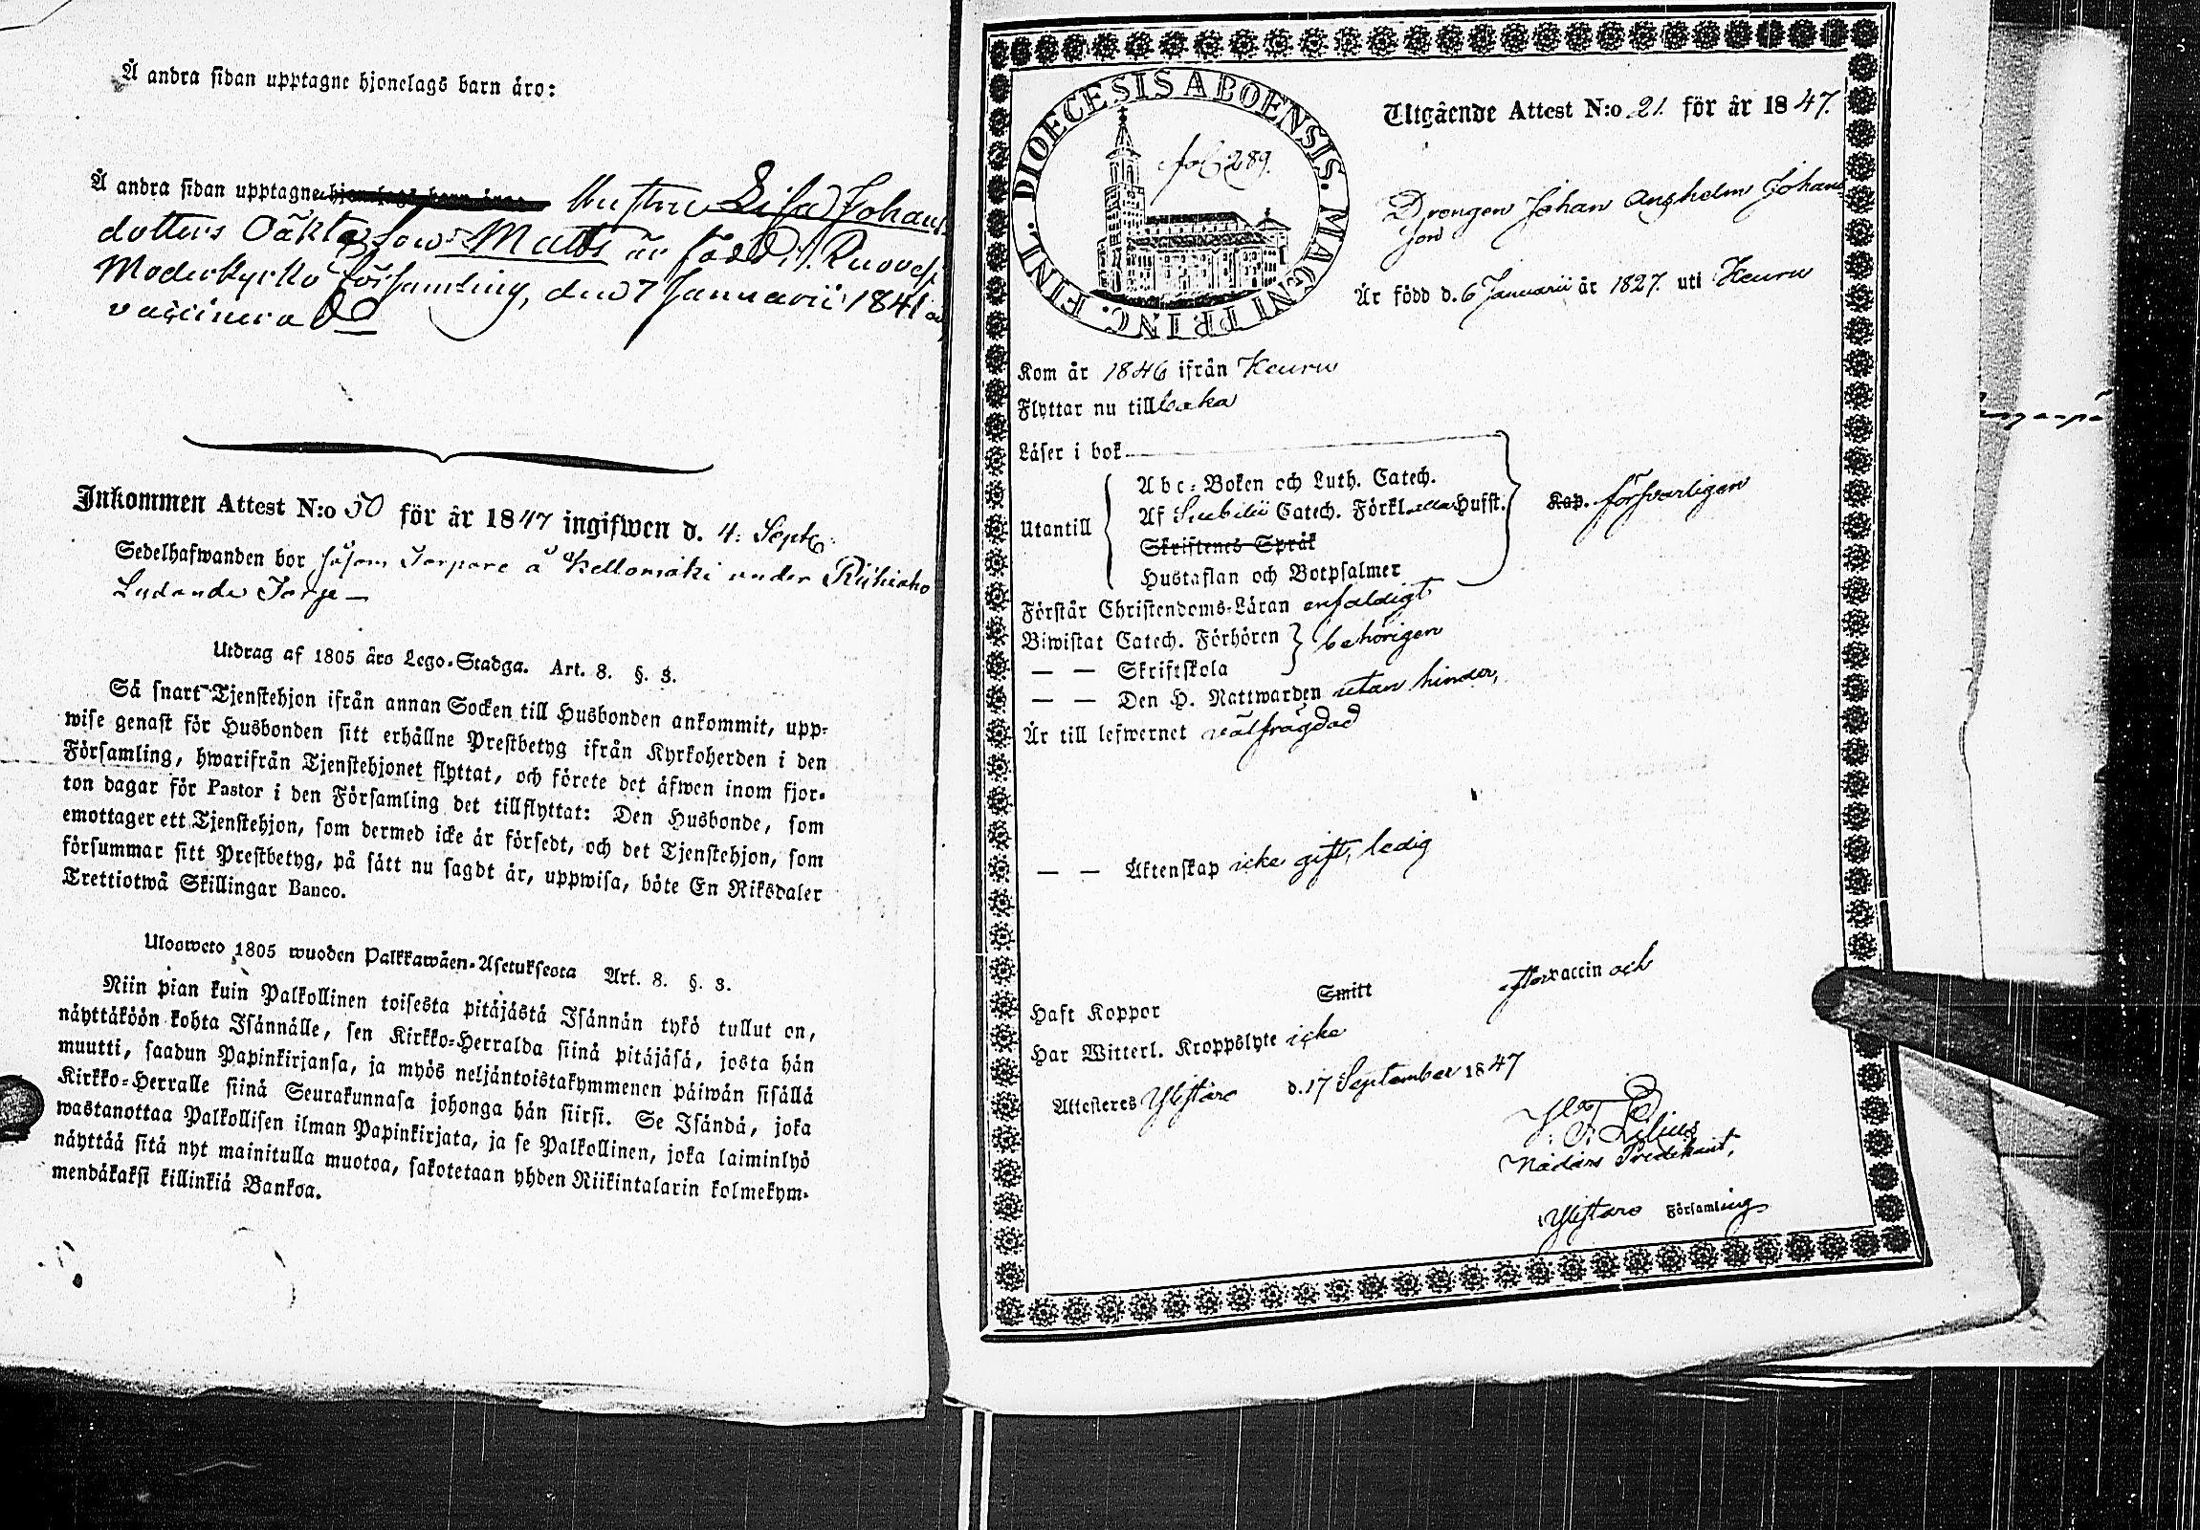 Å andra sidan upptagne hjonelags barn äro:
Å andra sidan upptagne hjonelags barn äro Hustru Lisa Johans
dotters Oäkta son Matts är född i Ruovesi
Moderkyrko församling, den 7 Januarii 1841 och
vaccinerad
Inkommen Attest N:o 50 för år 1847 ingifwen d. 4. Sept.
Sedelhafwanden bor såsom Torpare å Kellomäki under Riihiaho
Lydande Torp
Utdrag af 1805 års Lego-Stadga. Art. 8. §. 3.
Så snart Tjenstehjon ifrån annan Socken till Husbonden ankommit, upp-
wise genast för Husbonden sitt erhållne Prestbetyg ifrån Kyrkoherden i den
Församling, hwarifrån Tjenstehjonet flyttat, och förete det äfwen inom fjor-
ton dagar för Pastor i den Församling det tillflyttat: Den Husbonde, som
emottager ett Tjenstehjon, som dermed icke är försedt, och det Tjenstehjon, som
försummar sitt Prestbetyg, på sätt nu sagdt är, uppwisa, böte En Riksdaler
Trettiotwå Skillingar Banco.
Ulosweto 1805 wuoden Palkkawäen-Asetuksesta Art. 8. §. 3.
Niin pian kuin Palkollinen toisesta pitäjästä Isännän tykö tullut on,
näyttäköön kohta Isännälle, sen Kirkko-Herralda siinä pitäjäsä, josta hän
muutti, saadun Papinkirjansa, ja myös neljäntoistakymmenen päiwän sisällä
Kirkko-Herralle siinä Seurakunnasa johonga hän siirsi. Se Isändä, joka
wastanottaa Palkollisen ilman Papinkirjata, ja se Palkollinen, joka laiminlyö
näyttää sitä nyt mainitulla muotoa, sakotetaan yhden Riikintalarin kolmekym-
mendäkaksi killinkiä Bankoa.
DIOECESIS ABOENSIS. MAGNI PRINC. FINL.
fol 289.
Utgående Attest N:o 21. för år 1847.
Drengen Johan Anshelm Johans
son
Är född d. 6 Januarii år 1827. uti Keuru
Kom år 1846 ifrån Keuru
Flyttar nu tillbaka
Läser i bok
Abc-Boken och Luth. Catech.
Af Svebilii Catech. Förkl. Husst.
Utantill
Kap. försvarligen
Skriftenes Språk
Hustaflan och Botpsalmer
Förstår Christendoms-Läran enfaldigt
Biwistat Catech. Förhören
behörigen
— — Skriftskola
— — Den H. Nattwarden utan hinder,
Är till lefwernet välfrägdad
— — Äktenskap icke gift, ledig
Haft Koppor Smitt efter vaccin och
Har Witterl. Kroppslyte icke
Attesteres Ylistaro d. 17 September 1847
Lilius
Nådårs Predikant,
Ylistaro Församling